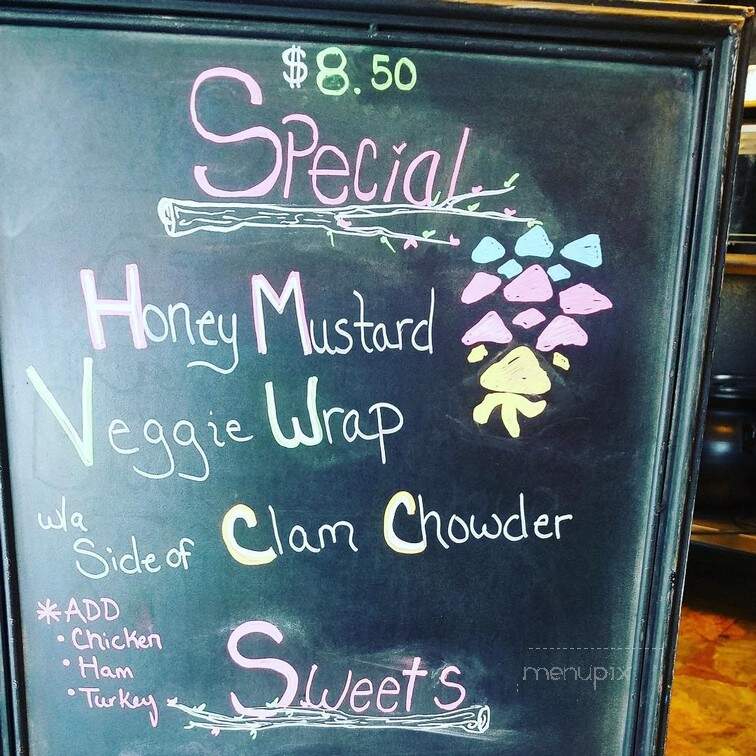 $8.50
Special
Honey Mustard
Veggie Wrap
w/a
Side of Clam Chowder
*ADD
• Chicken
• Ham
• Turkey
Sweets
menupix